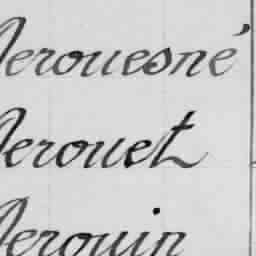 Derouesné
Derouet
Derouin